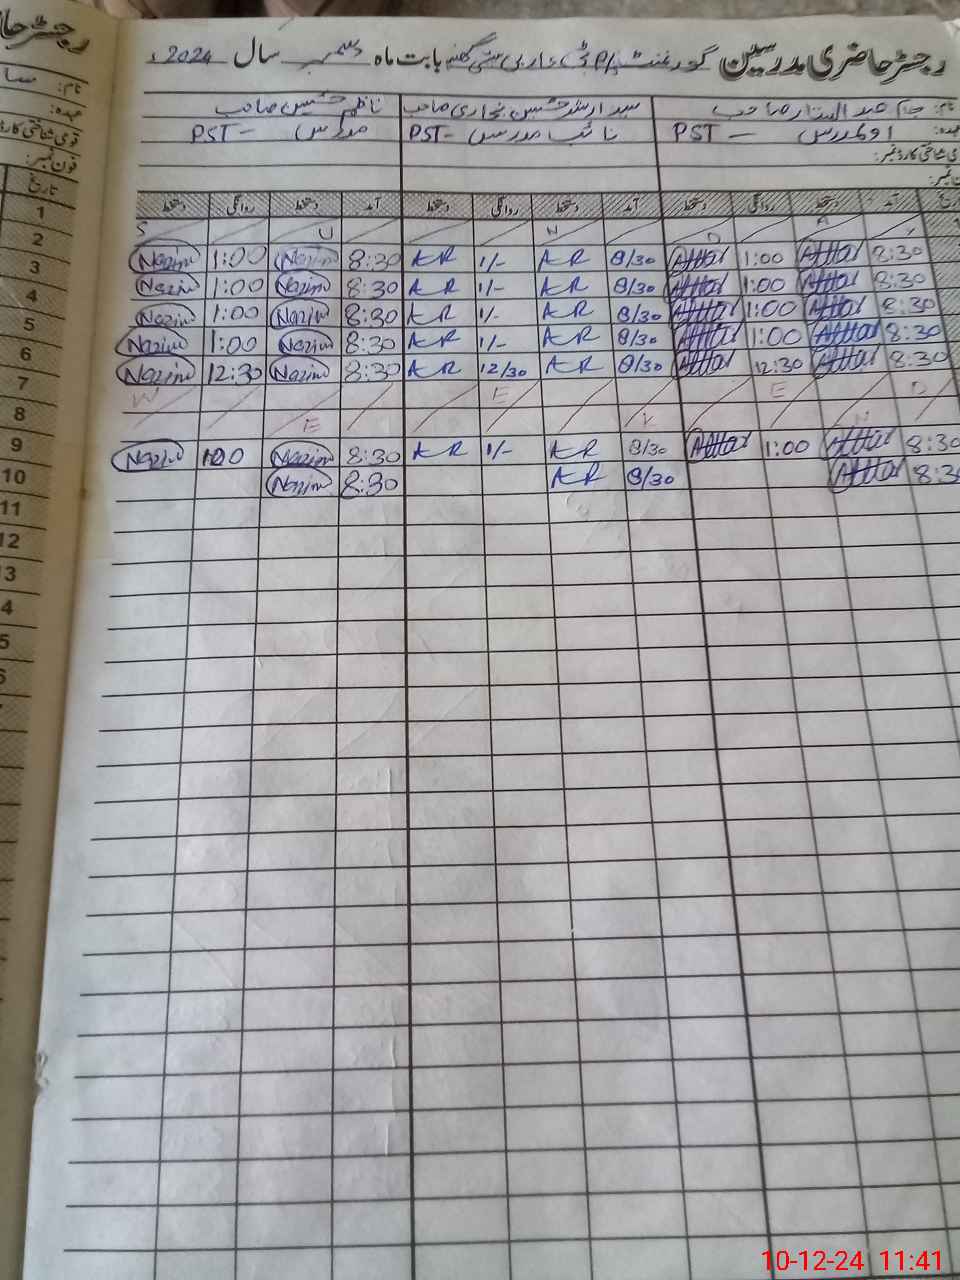 رجسٹر حاضری مدرسین گورنمنٹ بابت ماہ دسمبر سال 2024ء
نام: صاحب سید ارشد حسین بخاری صاحب ناظم حسین صاحب
عہدہ: اول مدرس — PST نائب مدرس — PST مدرس — PST
قومی شناختی کارڈ نمبر:
فون نمبر:
تاریخ آمد دستخط روانگی دستخط آمد دستخط روانگی دستخط آمد دستخط روانگی دستخط
1 S U N D A Y
2 8:30 Attar 1:00 Attar 8/30 AR 1/- AR 8:30 Nazim 1:00 Nazim
3 8:30 Attar 1:00 Attar 8/30 AR 1/- AR 8:30 Nazim 1:00 Nazim
4 8:30 Attar 1:00 Attar 8/30 AR 1/- AR 8:30 Nazim 1:00 Nazim
5 8:30 Attar 1:00 Attar 8/30 AR 1/- AR 8:30 Nazim 1:00 Nazim
6 8:30 Attar 12:30 Attar 8/30 AR 12/30 AR 8:30 Nazim 12:30 Nazim
7 W E E D
8 E K N
9 8:30 Attar 1:00 Attar 8/30 AR 1/- AR 8:30 Nazim 1:00 Nazim
10 8:30 Attar 8/30 AR 8:30 Nazim
11
12
13
10-12-24 11:41